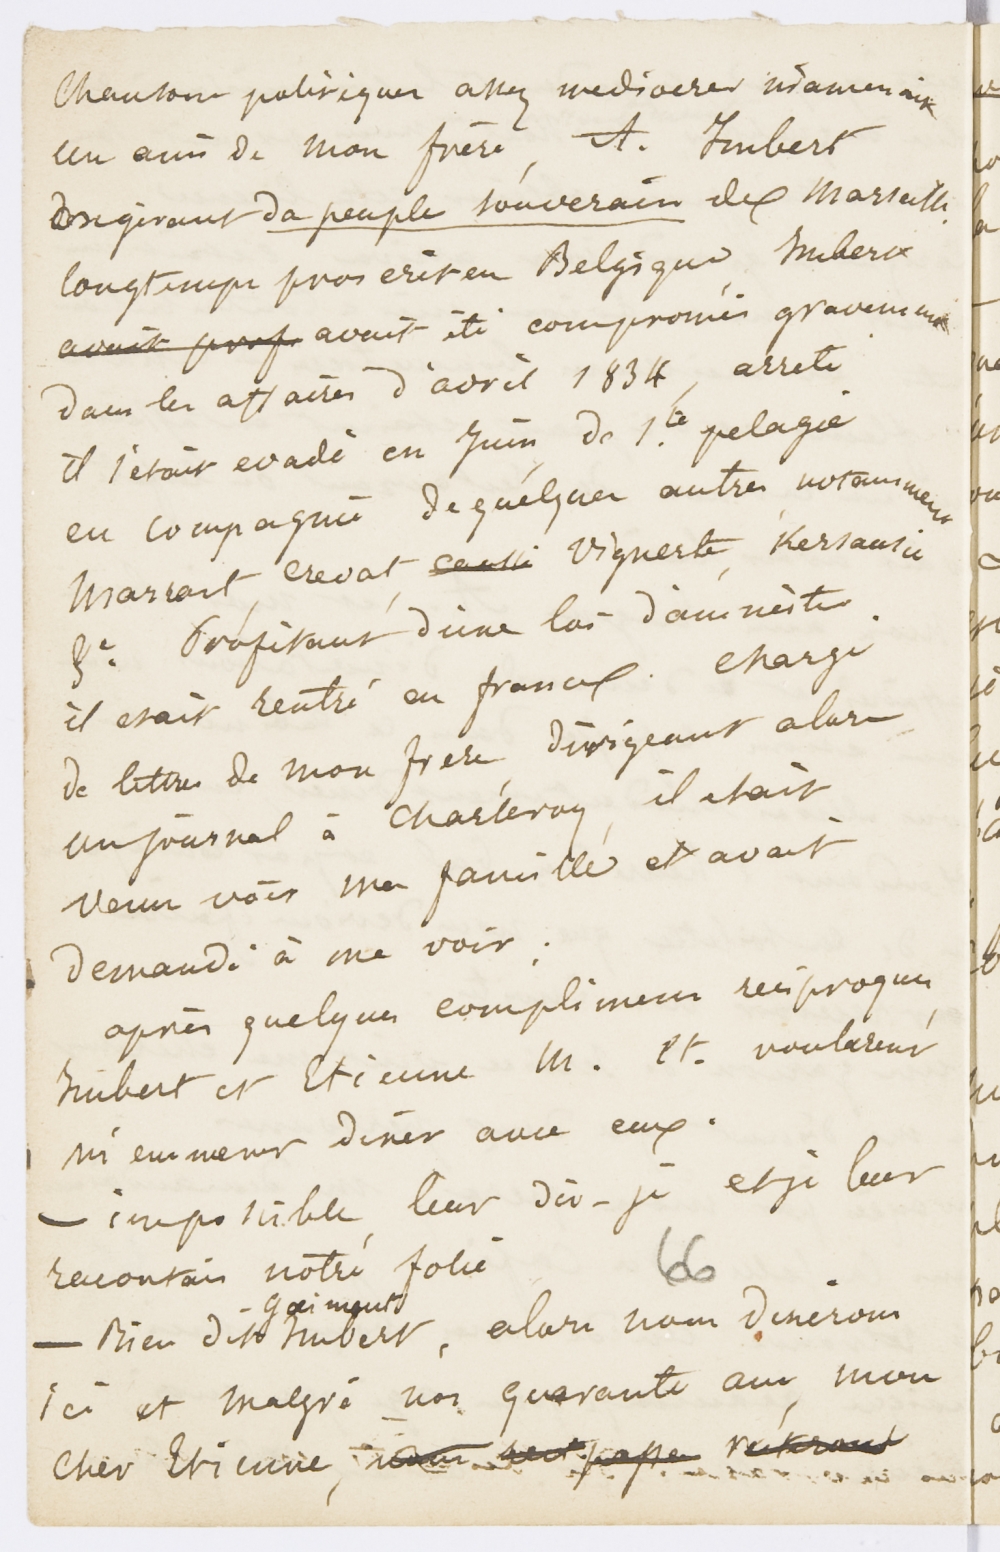 Chansons politiques assez mediocres m'amenait
un ami de mon frère, A. Imbert
Dirigeant du peuple souverain de Marseille.
longtemps proscrit en Belgique, Imbert
avait prof. avait été compromis gravement
dans les affaires d'avril 1834, arreté
il s'était evadé en Juin, de Ste pelagie
en compagnie de quelques autres notamment
Marrast, Crevat, Vignerte, Kersausie
&c. Profitant d'une loi d'amnistie.
il etait rentré en france. Chargé
de lettres de mon frere, dirigeant alors
un journal à Charleroy, il etait
venu voir ma famille et avait
demandé à me voir.
après quelques complimens reciproques,
Imbert et Etienne M. et. voulurent
m'emmener diner avec eux.
— impossible, leur dis-je et je leur
racontais notre folie
66
gaiment
— Bien dit Imbert, alors nous dinerons
ici et malgré nos quarante ans, mon
cher Etienne,